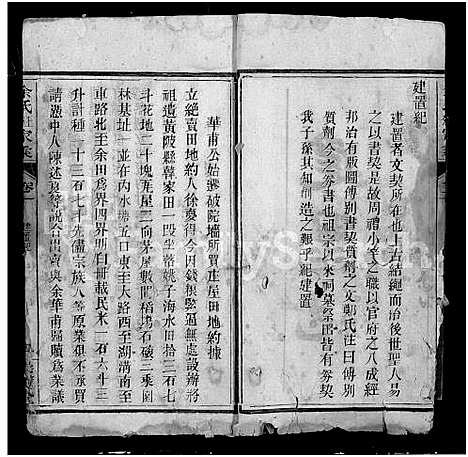 建置紀
建置者文契所在也上古結繩而治後世聖人易
之以書契是故周禮小宰之職以官府之八成經
邦治有版圖傅別書契質劑之文鄭氏注曰傅別
質劑今之券書也祖宗以來祠墓祭器皆有券契
我子孫其知創造之艱乎紀建置
華甫公始遷破院墻所買庄屋田地約據
立絶賣田地約人徐慶得今因錢糧緊逼無處設辦將
祖遺黃陂縣韓家田一段坐落姚子海水田拾三石七
斗花地二十塊瓦屋三向茅屋數間稻塲石磙二乘園
林基址一並在內水塘五口東至大路西至湖溝南至
車路北至余田為界四界節白冊載民米一石六斗三
升計種一十三石七斗先儘宗族八等原業俱不承買
請憑中人陳述夷等說合出賣與余華甫
余氏